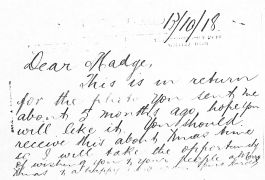 17/10/18.
Dear Madge,
This is in return
for the photo you sent me
about 3 months ago, hope you
will like it. You should
receive this about Xmas time
so I will take the opportunity
of wishing you & your people a Merry
Xmas & a Happy